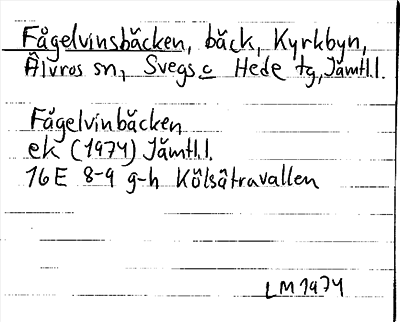 Fågelvinsbäcken, bäck, Kyrkbyn,
Älvros sn, Svegs o Hede tg, Jämtl.l.
Fågelvinbäcken
ek (1974) Jämtl.l.
16E 8-9 g-h Kölsätravallen
LM 1974